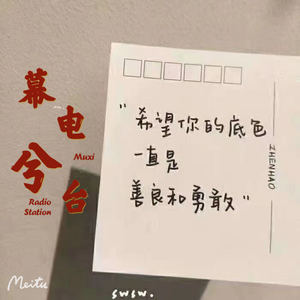 幕电兮台
Muxi
Radio
Station
“希望你的底色
一直是
善良和勇敢”
ZHENHAO
Meitu
swsw.